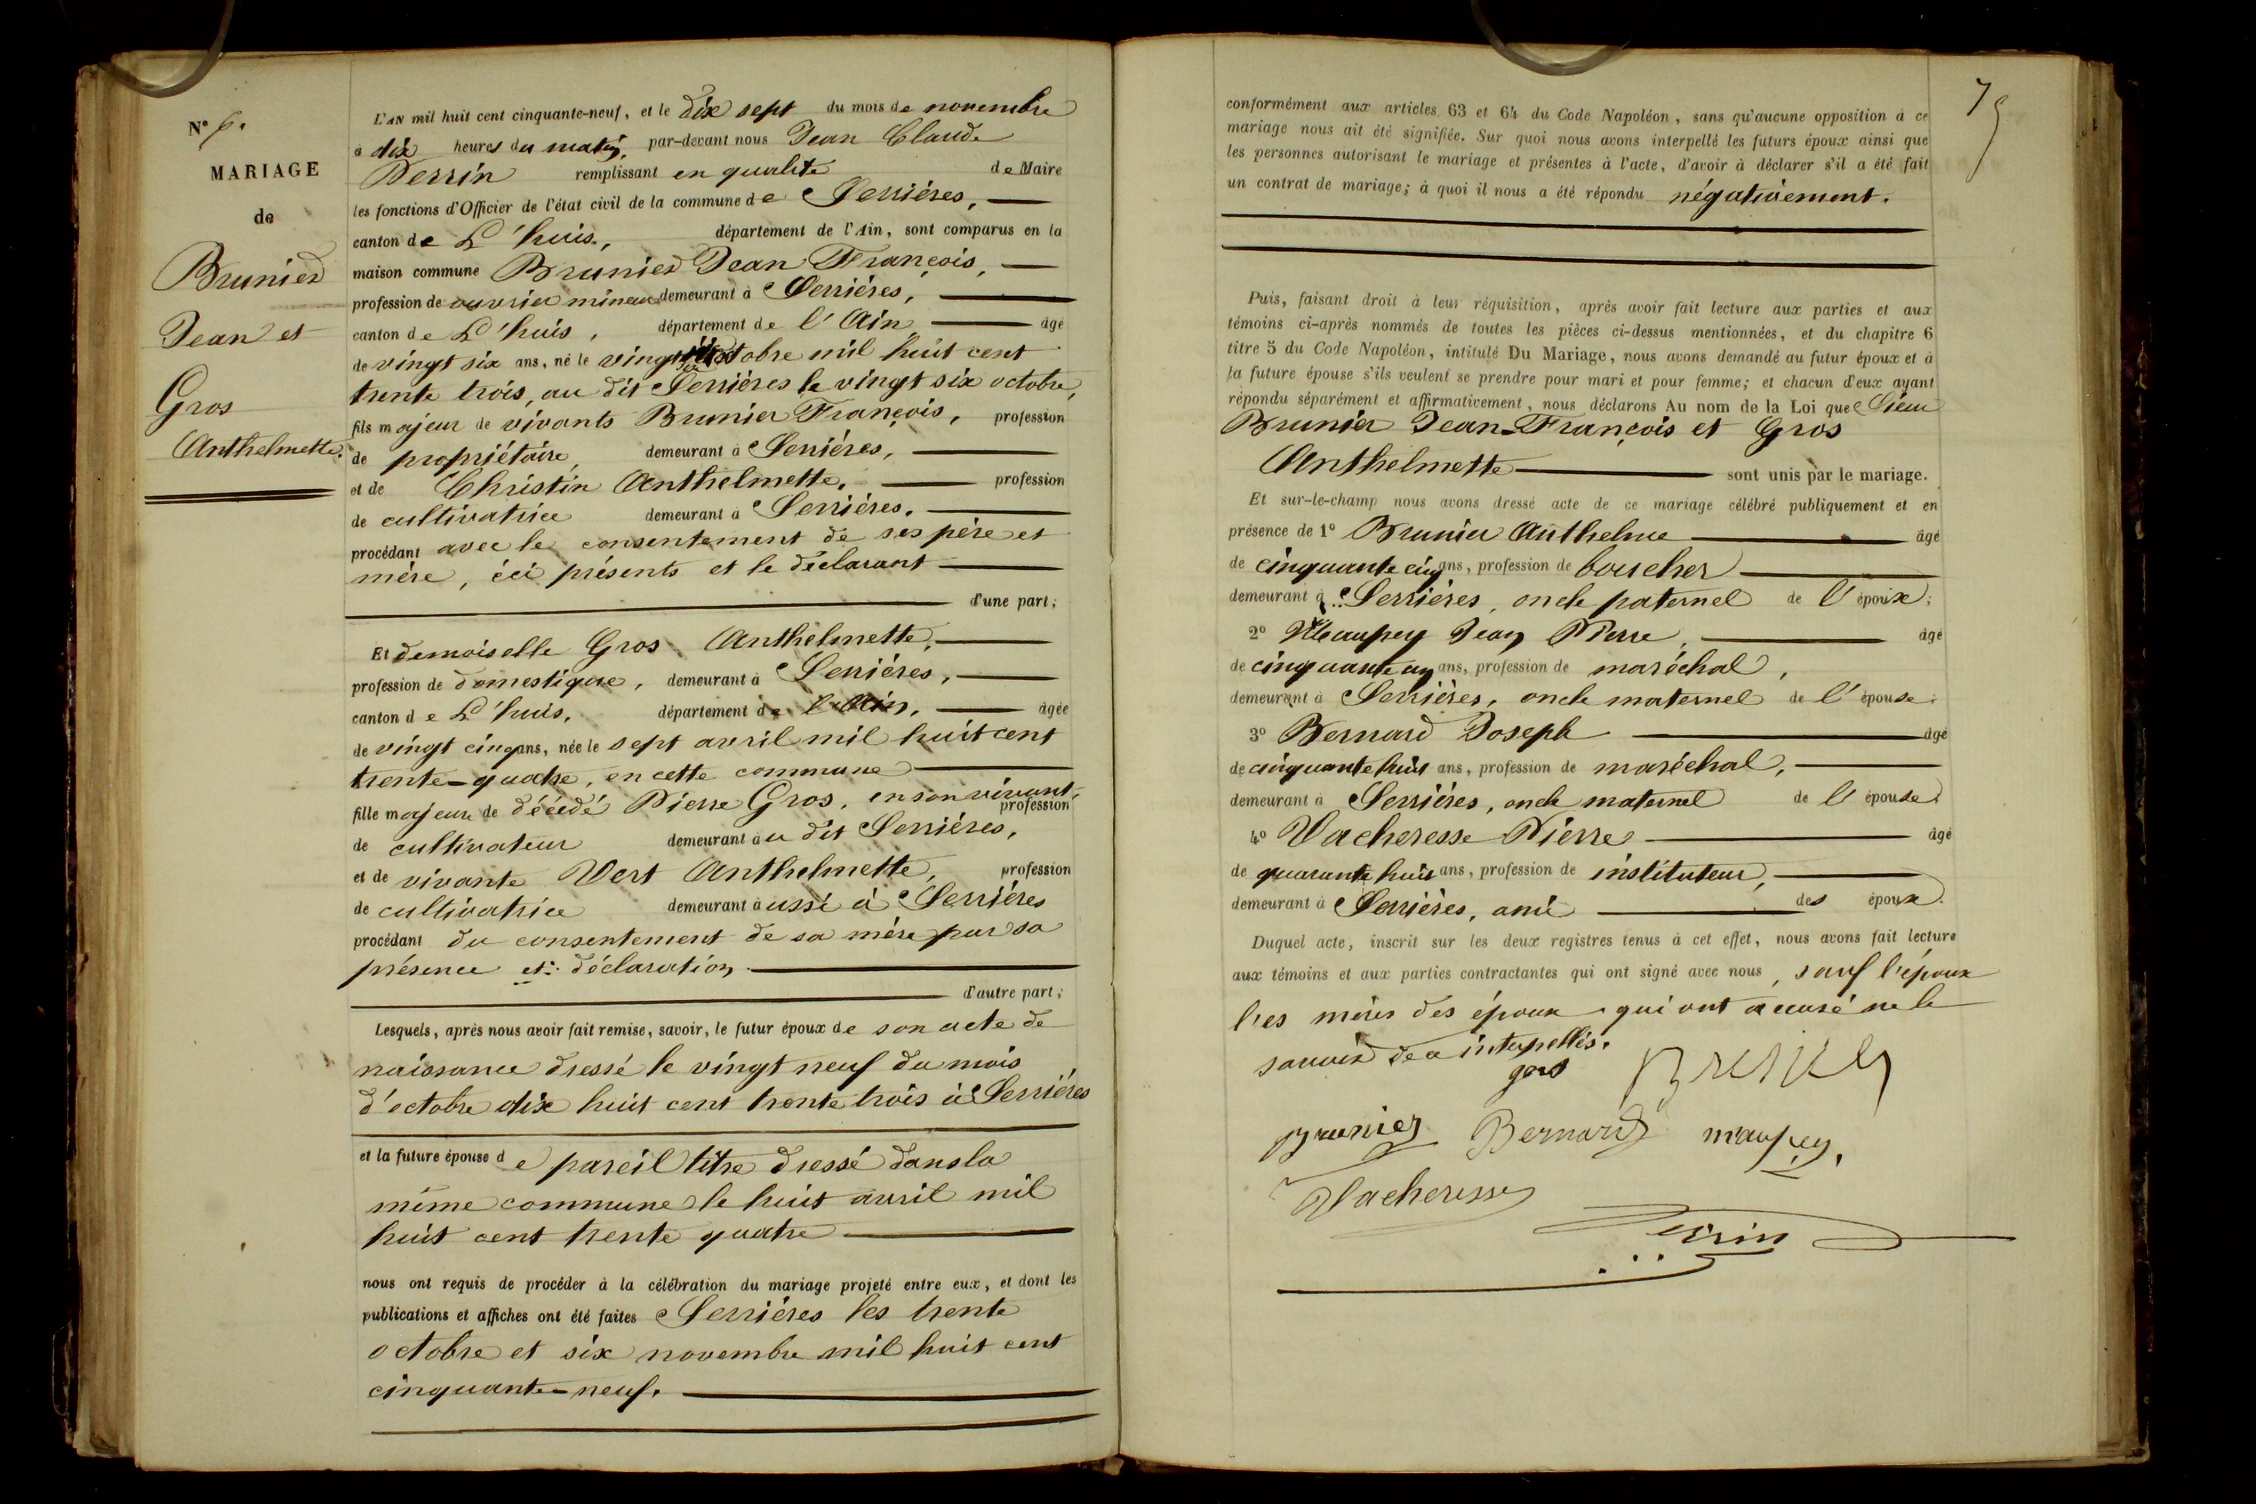 N° 6.
MARIAGE
de
Brunier
Jean et
Gros
Anthelmette.
L'AN mil huit cent cinquante-neuf, et le dix sept du mois de novembre
à dix heures du matin, par-devant nous Jean Claude
Perrin remplissant en qualité de Maire
les fonctions d'Officier de l'état civil de la commune de Serrières,
canton de L'huis, département de l'Ain, sont comparus en la
maison commune Brunier Jean François,
profession de ouvrier mineur demeurant à Serrières,
canton de L'huis, département de l'Ain âgé
de vingt six ans, né le vingt six octobre mil huit cent
trente trois, au dit Serrières le vingt six octobre,
fils majeur de vivants Brunier François, profession
de propriétaire demeurant à Serrières,
et de Christin Anthelmette, profession
de cultivatrice demeurant à Serrières.
procédant avec le consentement de ses père et
mère, ici présents et le déclarant
d'une part;
Et demoiselle Gros Anthelmette,
profession de domestique, demeurant à Serrières,
canton de L'huis, département de l'Ain, âgée
de vingt cinq ans, née le sept avril mil huit cent
trente-quatre, en cette commune
fille majeure de décédé Pierre Gros, en son vivant, profession
de cultivateur demeurant au dit Serrières,
et de vivante Vert Anthelmette, profession
de cultivatrice demeurant aussi à Serrières
procédant du consentement de sa mère par sa
présence et déclaration
d'autre part;
Lesquels, après nous avoir fait remise, savoir, le futur époux de son acte de
naissance dressé le vingt neuf du mois
d'octobre dix huit cent trente trois à Serrières
et la future épouse de pareil titre dressé dans la
même commune le huit avril mil
huit cent trente quatre
nous ont requis de procéder à la célébration du mariage projeté entre eux, et dont les
publications et affiches ont été faites Serrières les trente
octobre et six novembre mil huit cent
cinquante-neuf.
conformément aux articles 63 et 64 du Code Napoléon, sans qu'aucune opposition à ce
mariage nous ait été signifiée. Sur quoi nous avons interpellé les futurs époux ainsi que
les personnes autorisant le mariage et présentes à l'acte, d'avoir à déclarer s'il a été fait
un contrat de mariage; à quoi il nous a été répondu négativement.
Puis, faisant droit à leur réquisition, après avoir fait lecture aux parties et aux
témoins ci-après nommés de toutes les pièces ci-dessus mentionnées, et du chapitre 6
titre 5 du Code Napoléon, intitulé Du Mariage, nous avons demandé au futur époux et à
la future épouse s'ils veulent se prendre pour mari et pour femme; et chacun d'eux ayant
répondu séparément et affirmativement, nous déclarons Au nom de la Loi que Sieur
Brunier Jean-François et Gros
Anthelmette sont unis par le mariage.
Et sur-le-champ nous avons dressé acte de ce mariage célébré publiquement et en
présence de 1° Brunier Anthelme âgé
de cinquante cinq ans, profession de boucher
demeurant à Serrières, oncle paternel de l'époux;
2° Maupey Jean Pierre, âgé
de cinquante ans, profession de maréchal,
demeurant à Serrières, oncle maternel de l'épouse;
3° Bernard Joseph âgé
de cinquante huit ans, profession de maréchal,
demeurant à Serrières, oncle maternel de l'épouse.
4° Vacheresse Pierre âgé
de quarante huit ans, profession de instituteur,
demeurant à Serrières, ami des époux.
Duquel acte, inscrit sur les deux registres tenus à cet effet, nous avons fait lecture
aux témoins et aux parties contractantes qui ont signé avec nous, sauf l'époux
les mères des époux qui ont accusé ne le
savoir de ce interpellés.
gros Brunier
Brunier Bernard maupey,
Vacheresse
Perrin